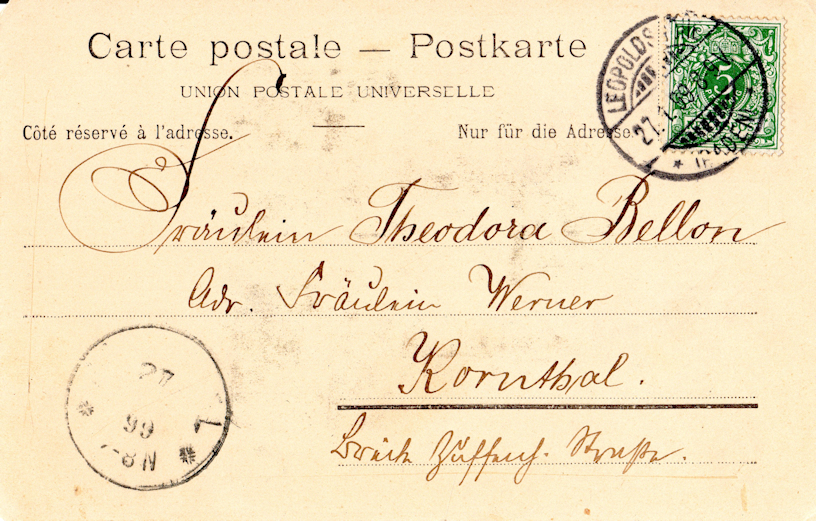 Carte postale — Postkarte
UNION POSTALE UNIVERSELLE
Côté réservé à l'adresse.
Nur für die Adresse.
LEOPOLDS
27.1.99
(BADEN)
5
Fräulein Theodora Bellon
Adr. Fräulein Werner
Kornthal.
Zuffenh. Straße.
27
1
99
7-8N